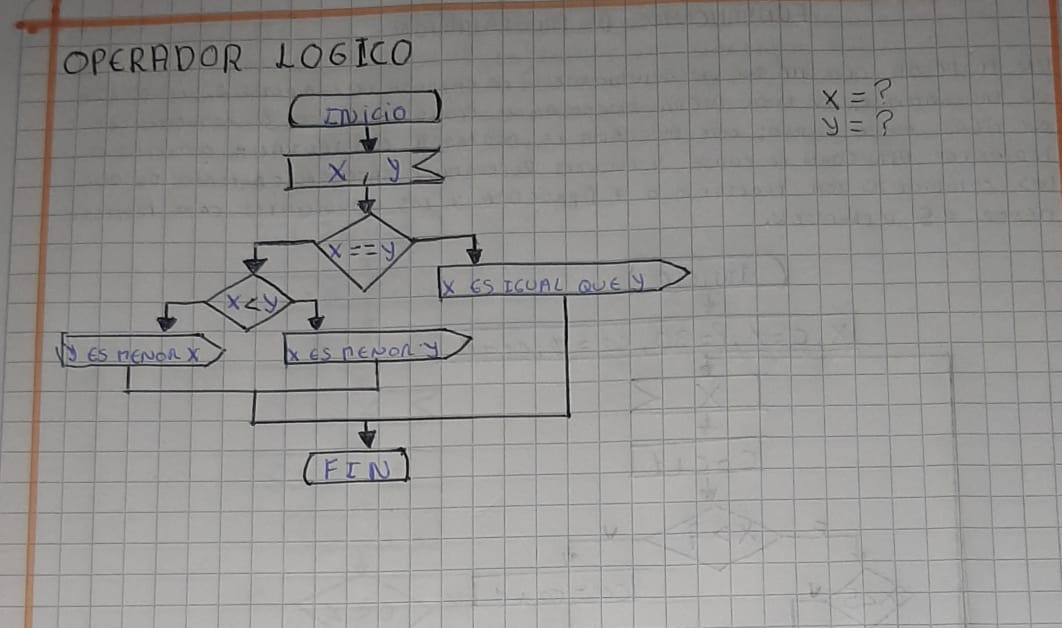 OPERADOR LOGICO
x = ?
y = ?
INicio
X , y
X == y
X ES IGUAL QUE y
X < y
y ES MENOR X
X ES MENOR y
FIN